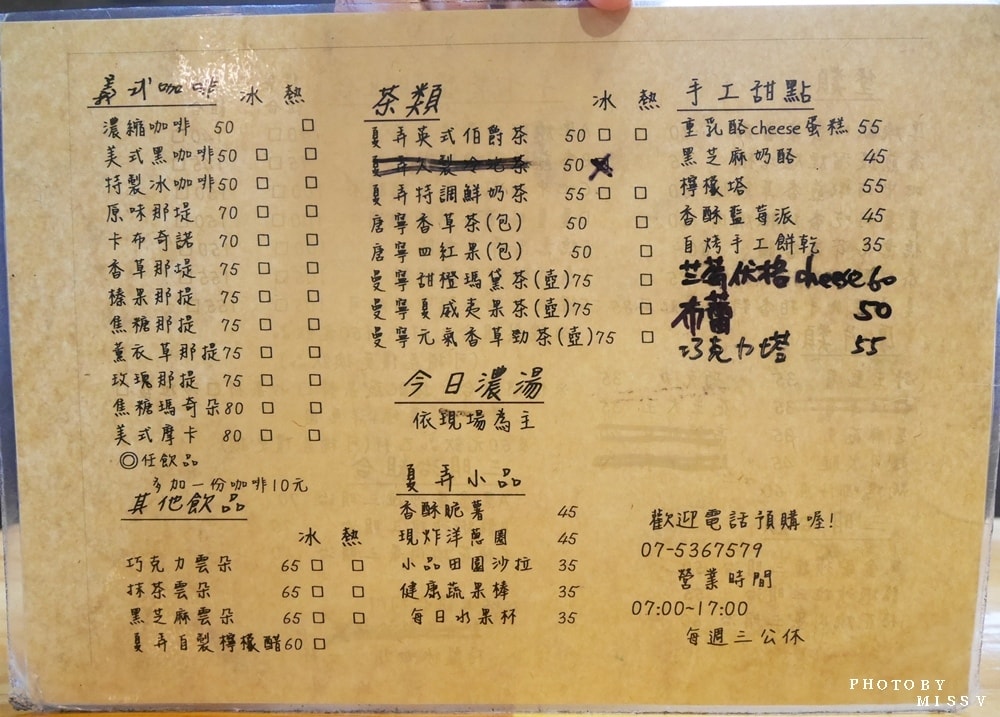 義式咖啡 冰 熱
濃縮咖啡 50 □
美式黑咖啡 50 □ □
特製冰咖啡 50 □ □
原味那堤 70 □ □
卡布奇諾 70 □ □
香草那堤 75 □ □
榛果那提 75 □ □
焦糖那提 75 □ □
薰衣草那提 75 □ □
玫瑰那提 75 □ □
焦糖瑪奇朵 80 □ □
美式摩卡 80 □ □
◎任飲品
多加一份咖啡10元
其他飲品
冰 熱
巧克力雲朵 65 □ □
抹茶雲朵 65 □ □
黑芝麻雲朵 65 □ □
夏弄自製檸檬醋 60 □
茶類 冰 熱
夏弄英式伯爵茶 50 □ □
50
夏弄特調鮮奶茶 55 □ □
唐寧香草茶(包) 50 □
唐寧四紅果(包) 50 □
曼寧甜橙瑪黛茶(壺) 75 □
曼寧夏威夷果茶(壺) 75 □
曼寧元氣香草勁茶(壺) 75 □
今日濃湯
依現場為主
夏弄小品
香酥脆薯 45
現炸洋蔥圈 45
小品田園沙拉 35
健康蔬果棒 35
每日水果杯 35
手工甜點
重乳酪cheese蛋糕 55
黑芝麻奶酪 45
檸檬塔 55
香酥藍莓派 45
自烤手工餅乾 35
cheese 60
布蕾 50
巧克力塔 55
歡迎電話預購喔!
07-5367579
營業時間
07:00~17:00
每週三公休
PHOTO BY
MISS V